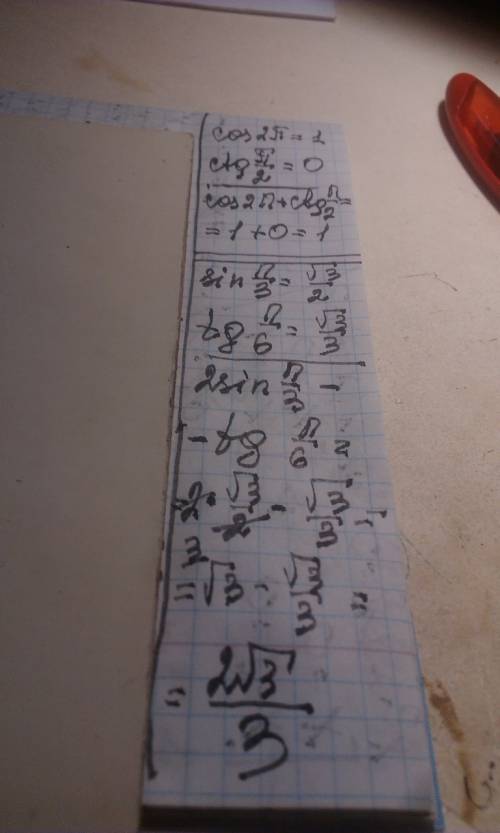 cos2π = 1
ctg π/2 = 0
cos2π + ctg π/2 =
= 1 + 0 = 1
sin π/3 = √3/2
tg π/6 = √3/3
2sin π/3 -
- tg π/6 =
= 2 · √3/2 - √3/3 =
= √3 - √3/3 =
= 2√3/3